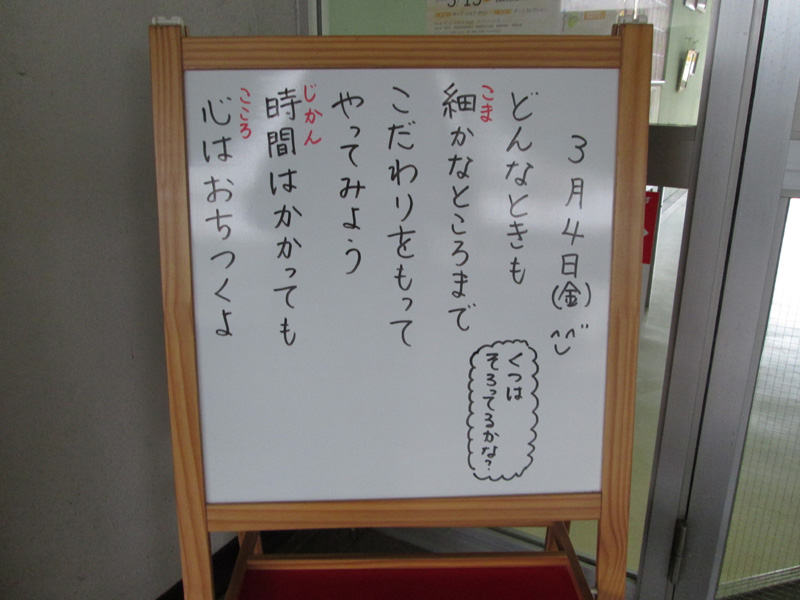 ３月４日(金)
どんなときも
細かなところまで
こま
こだわりをもって
やってみよう
時間はかかっても
じかん
心はおちつくよ
こころ
くつは
そろってるかな？